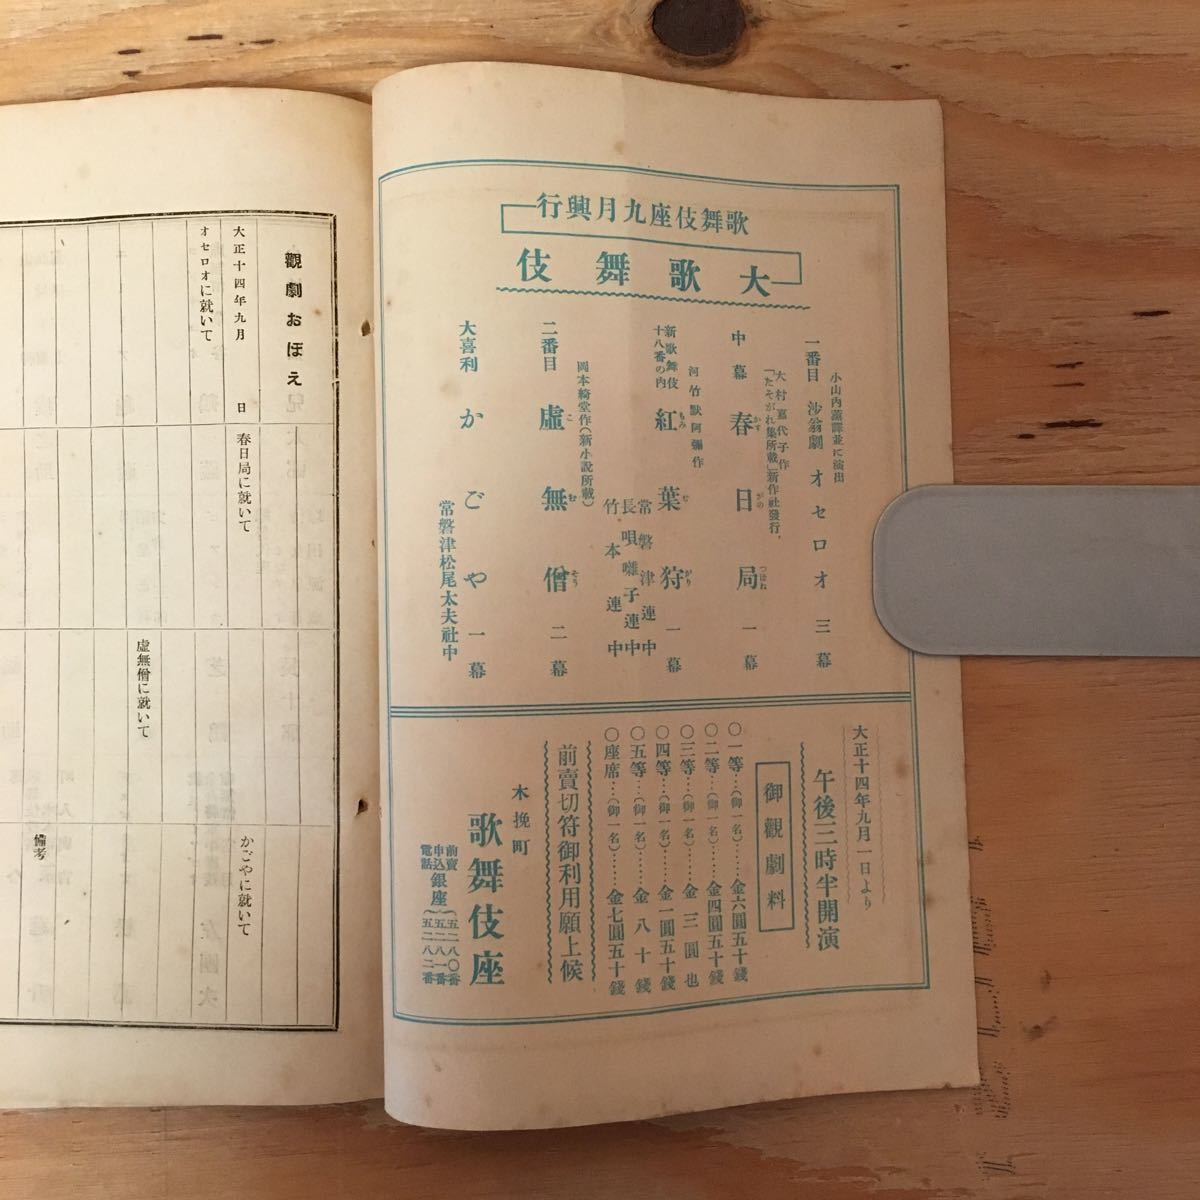 歌舞伎座九月興行
大歌舞伎
小山内薫譯並に演出
一番目 沙翁劇 オセロオ 三幕
大村嘉代子作
「たそがれ集所載」新作社發行、
中幕 春日局 一幕
かすがのつぼね
河竹默阿彌作
新歌舞伎十八番の内 紅葉狩 一幕
もみぢがり
常磐津連中
長唄囃子連中
竹本連中
岡本綺堂作(新小説所載)
二番目 虚無僧 二幕
こむそう
大喜利 かごや 一幕
常磐津松尾太夫社中
大正十四年九月一日より
午後三時半開演
御觀劇料
〇一等…(御一名)……金六圓五十錢
〇二等…(御一名)……金四圓五十錢
〇三等…(御一名)……金三圓也
〇四等…(御一名)……金一圓五十錢
〇五等…(御一名)……金八十錢
〇座席…(御一名)……金七圓五十錢
前賣切符御利用願上候
木挽町
歌舞伎座
前賣申込電話 銀座 五二八〇番 五二八一番 五二八二番
觀劇おぼえ
大正十四年九月 日
オセロオに就いて
春日局に就いて
虚無僧に就いて
かごやに就いて
備考